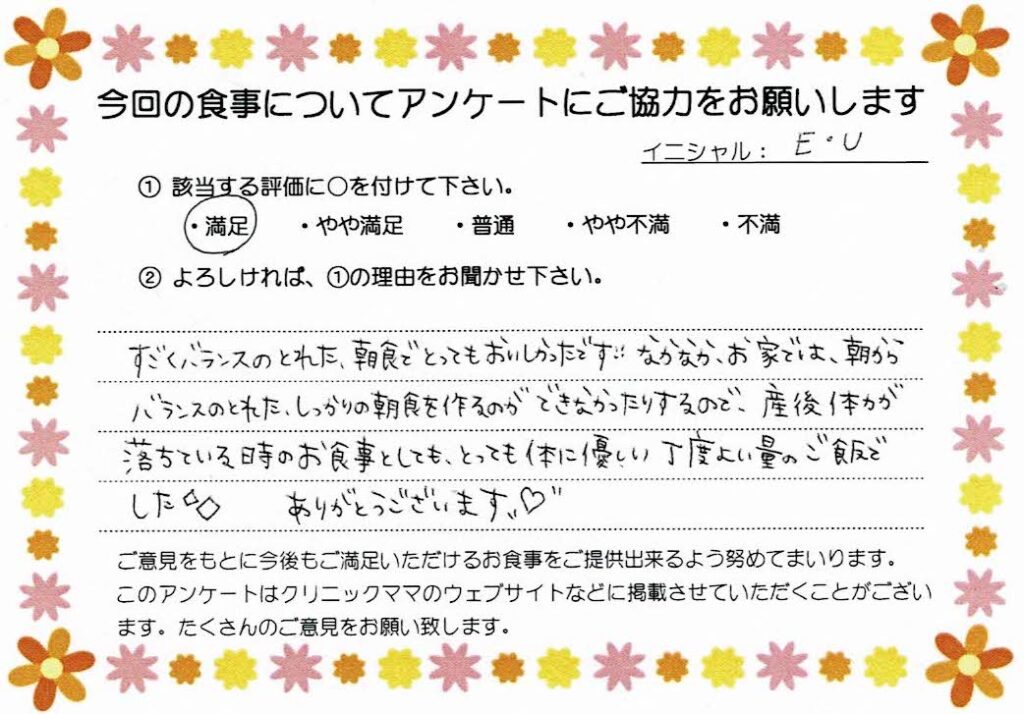 今回の食事についてアンケートにご協力をお願いします
イニシャル： E・U
① 該当する評価に○を付けて下さい。
・満足 ・やや満足 ・普通 ・やや不満 ・不満
② よろしければ、①の理由をお聞かせ下さい。
すごくバランスのとれた、朝食でとってもおいしかったです!! なかなか、お家では、朝から
バランスのとれた、しっかりの朝食を作るのができなかったりするので、産後体力が
落ちている時のお食事としても、とっても体に優しい丁度よい量のご飯で
した◇◇ ありがとうございます♡
ご意見をもとに今後もご満足いただけるお食事をご提供出来るよう努めてまいります。
このアンケートはクリニックママのウェブサイトなどに掲載させていただくことがござい
ます。たくさんのご意見をお願い致します。